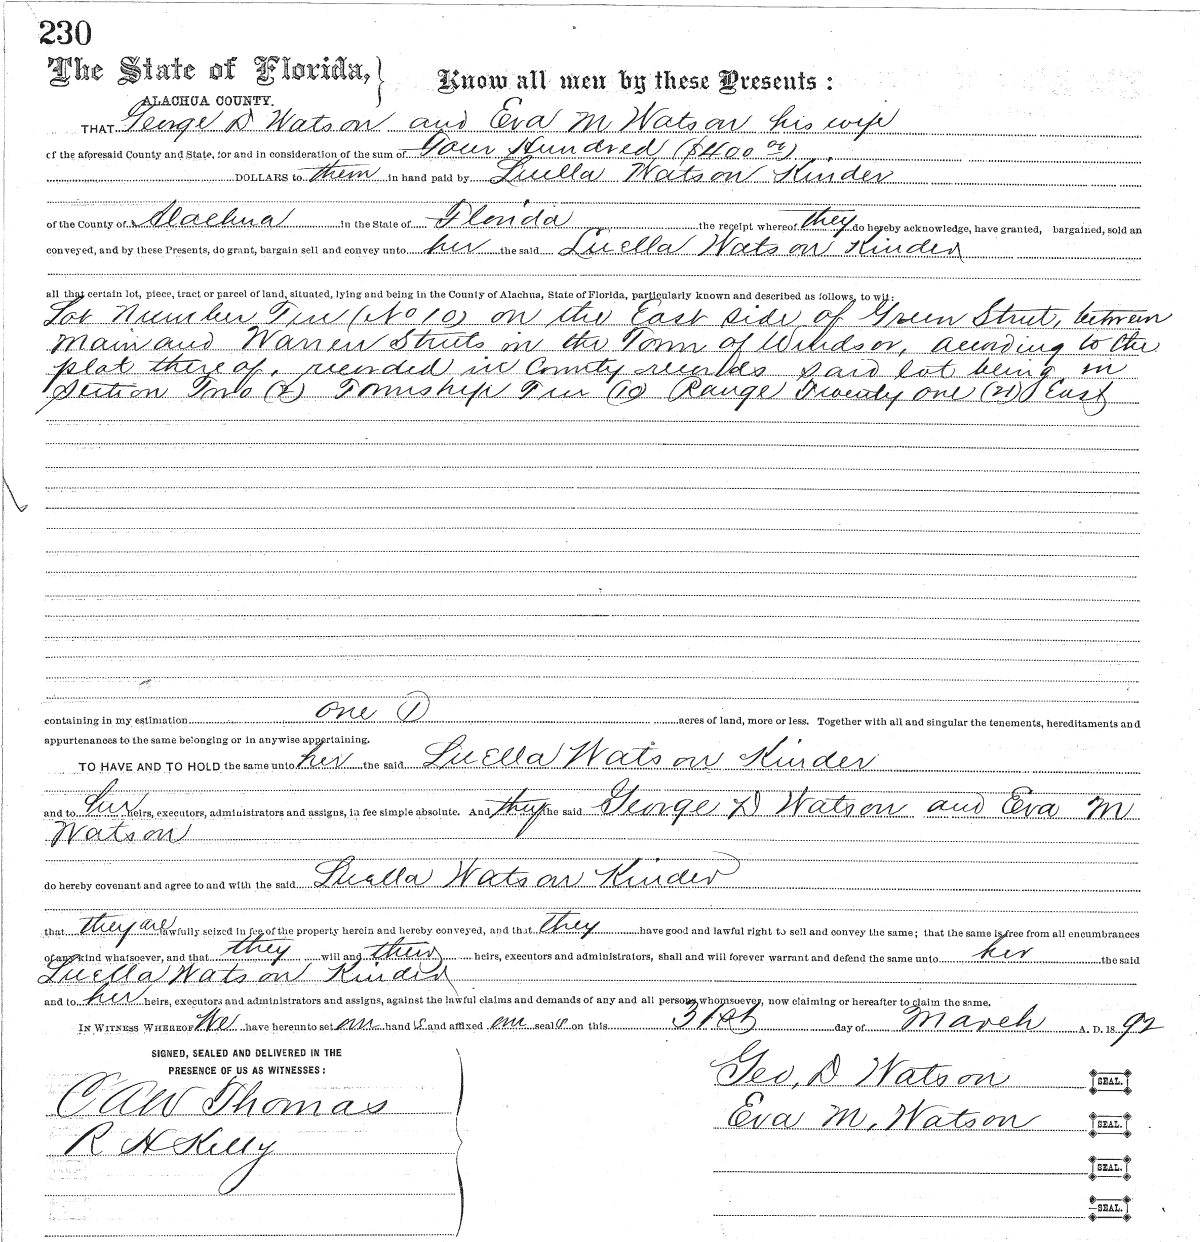 230
The State of Florida,
ALACHUA COUNTY.
Know all men by these Presents:
THAT George D Watson and Eva M Watson his wife
of the aforesaid County and State, for and in consideration of the sum of Four Hundred ($400 00)
DOLLARS to them in hand paid by Luella Watson Kinder
of the County of Alachua in the State of Florida the receipt whereof they do hereby acknowledge, have granted, bargained, sold an
conveyed, and by these Presents, do grant, bargain sell and convey unto her the said Luella Watson Kinder
all that certain lot, piece, tract or parcel of land, situated, lying and being in the County of Alachua, State of Florida, particularly known and described as follows, to wit:
Lot Number Ten (No 10) on the East side of Green Street, between
Main and Warren Streets in the Town of Windsor, according to the
plat there of, recorded in County records said lot being in
Section Two (2) Township Ten (10) Range Twenty one (21) East
containing in my estimation one (1) acres of land, more or less. Together with all and singular the tenements, hereditaments and
appurtenances to the same belonging or in anywise appertaining.
TO HAVE AND TO HOLD the same unto her the said Luella Watson Kinder
and to her heirs, executors, administrators and assigns, in fee simple absolute. And they the said George D Watson and Eva M
Watson
do hereby covenant and agree to and with the said Luella Watson Kinder
that they are lawfully seized in fee of the property herein and hereby conveyed, and that they have good and lawful right to sell and convey the same; that the same is free from all encumbrances
of any kind whatsoever, and that they will and their heirs, executors and administrators, shall and will forever warrant and defend the same unto her the said
Luella Watson Kinder
and to her heirs, executors and administrators and assigns, against the lawful claims and demands of any and all persons whomsoever, now claiming or hereafter to claim the same.
IN WITNESS WHEREOF We have hereunto set our hand s and affixed our seal s on this 31st day of March A. D. 18 92
SIGNED, SEALED AND DELIVERED IN THE
PRESENCE OF US AS WITNESSES:
C A W Thomas
R H Kelly
Geo, D Watson SEAL.
Eva M, Watson SEAL.
SEAL.
SEAL.